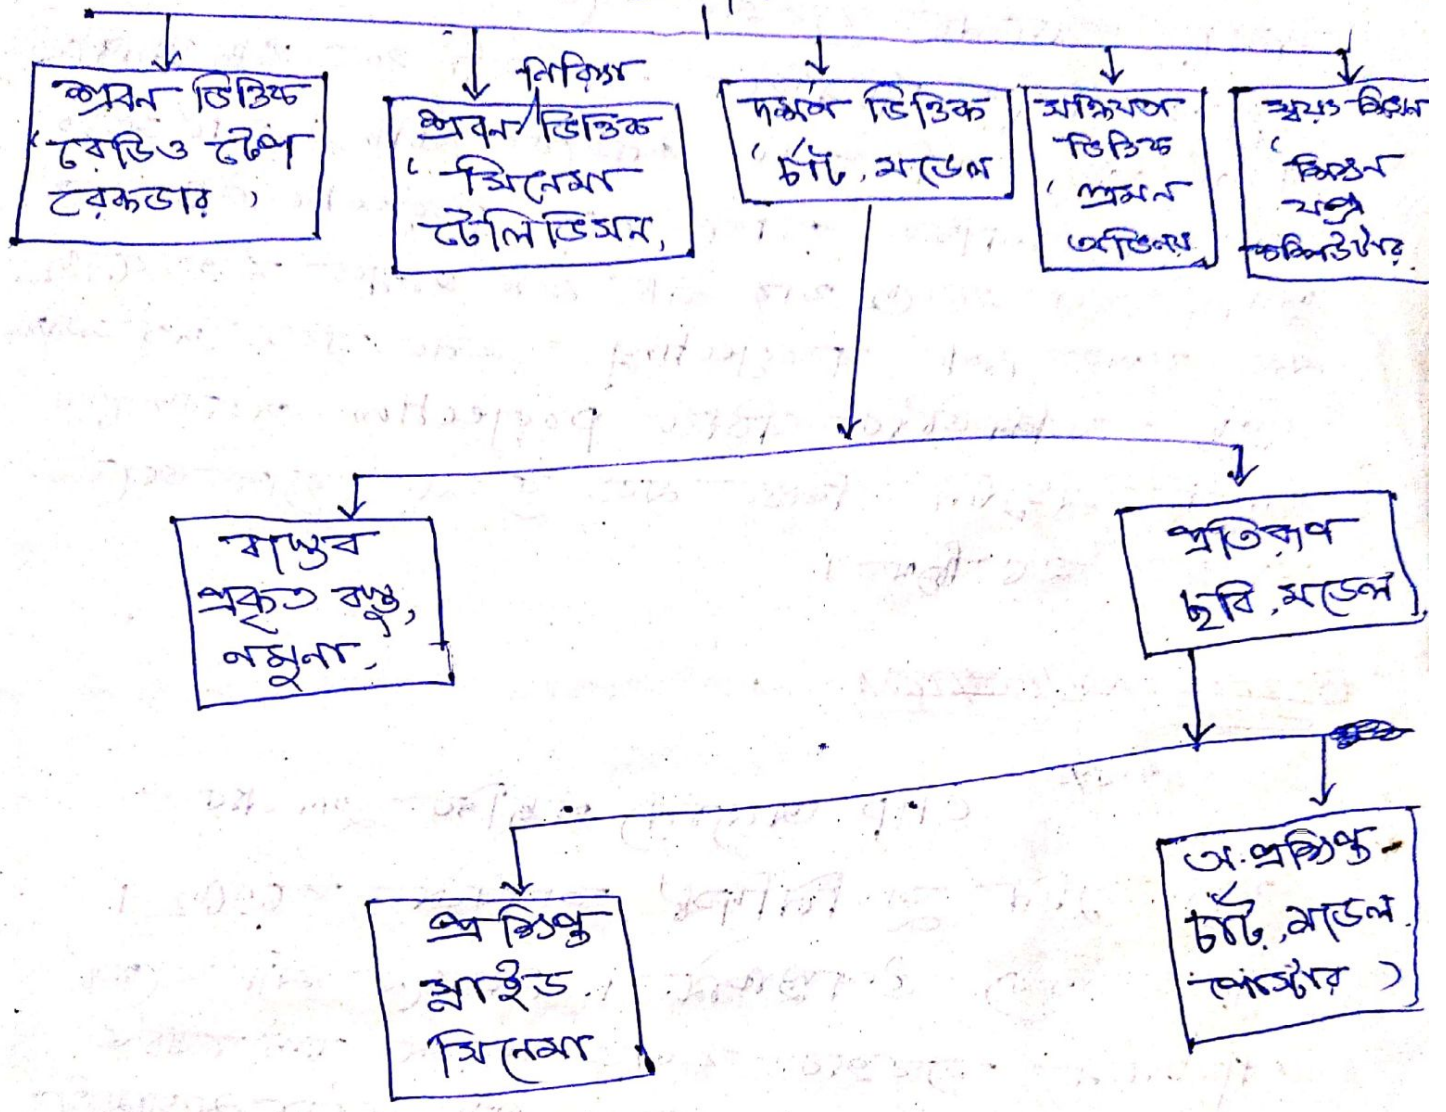 শ্রবন ভিত্তিক
‘রেডিও টেপ
রেকডার’
নিরিক্ষা
শ্রবন/ভিত্তিক
‘সিনেমা
টেলিভিসন,
দর্শণ ভিত্তিক
‘চার্ট, মডেল
সক্রিয়তা
ভিত্তিক
‘ভ্রমন
অভিনয়
স্বয়ং শিক্ষন
‘শিক্ষন
যন্ত্র
কম্পিউটার
বাস্তব
প্রকৃত বস্তু,
নমুনা.
প্রতিরূপ
ছবি, মডেল)
প্রক্ষিপ্ত
স্লাইড
সিনেমা
অ-প্রক্ষিপ্ত-
চার্ট, মডেল
পোস্টার )